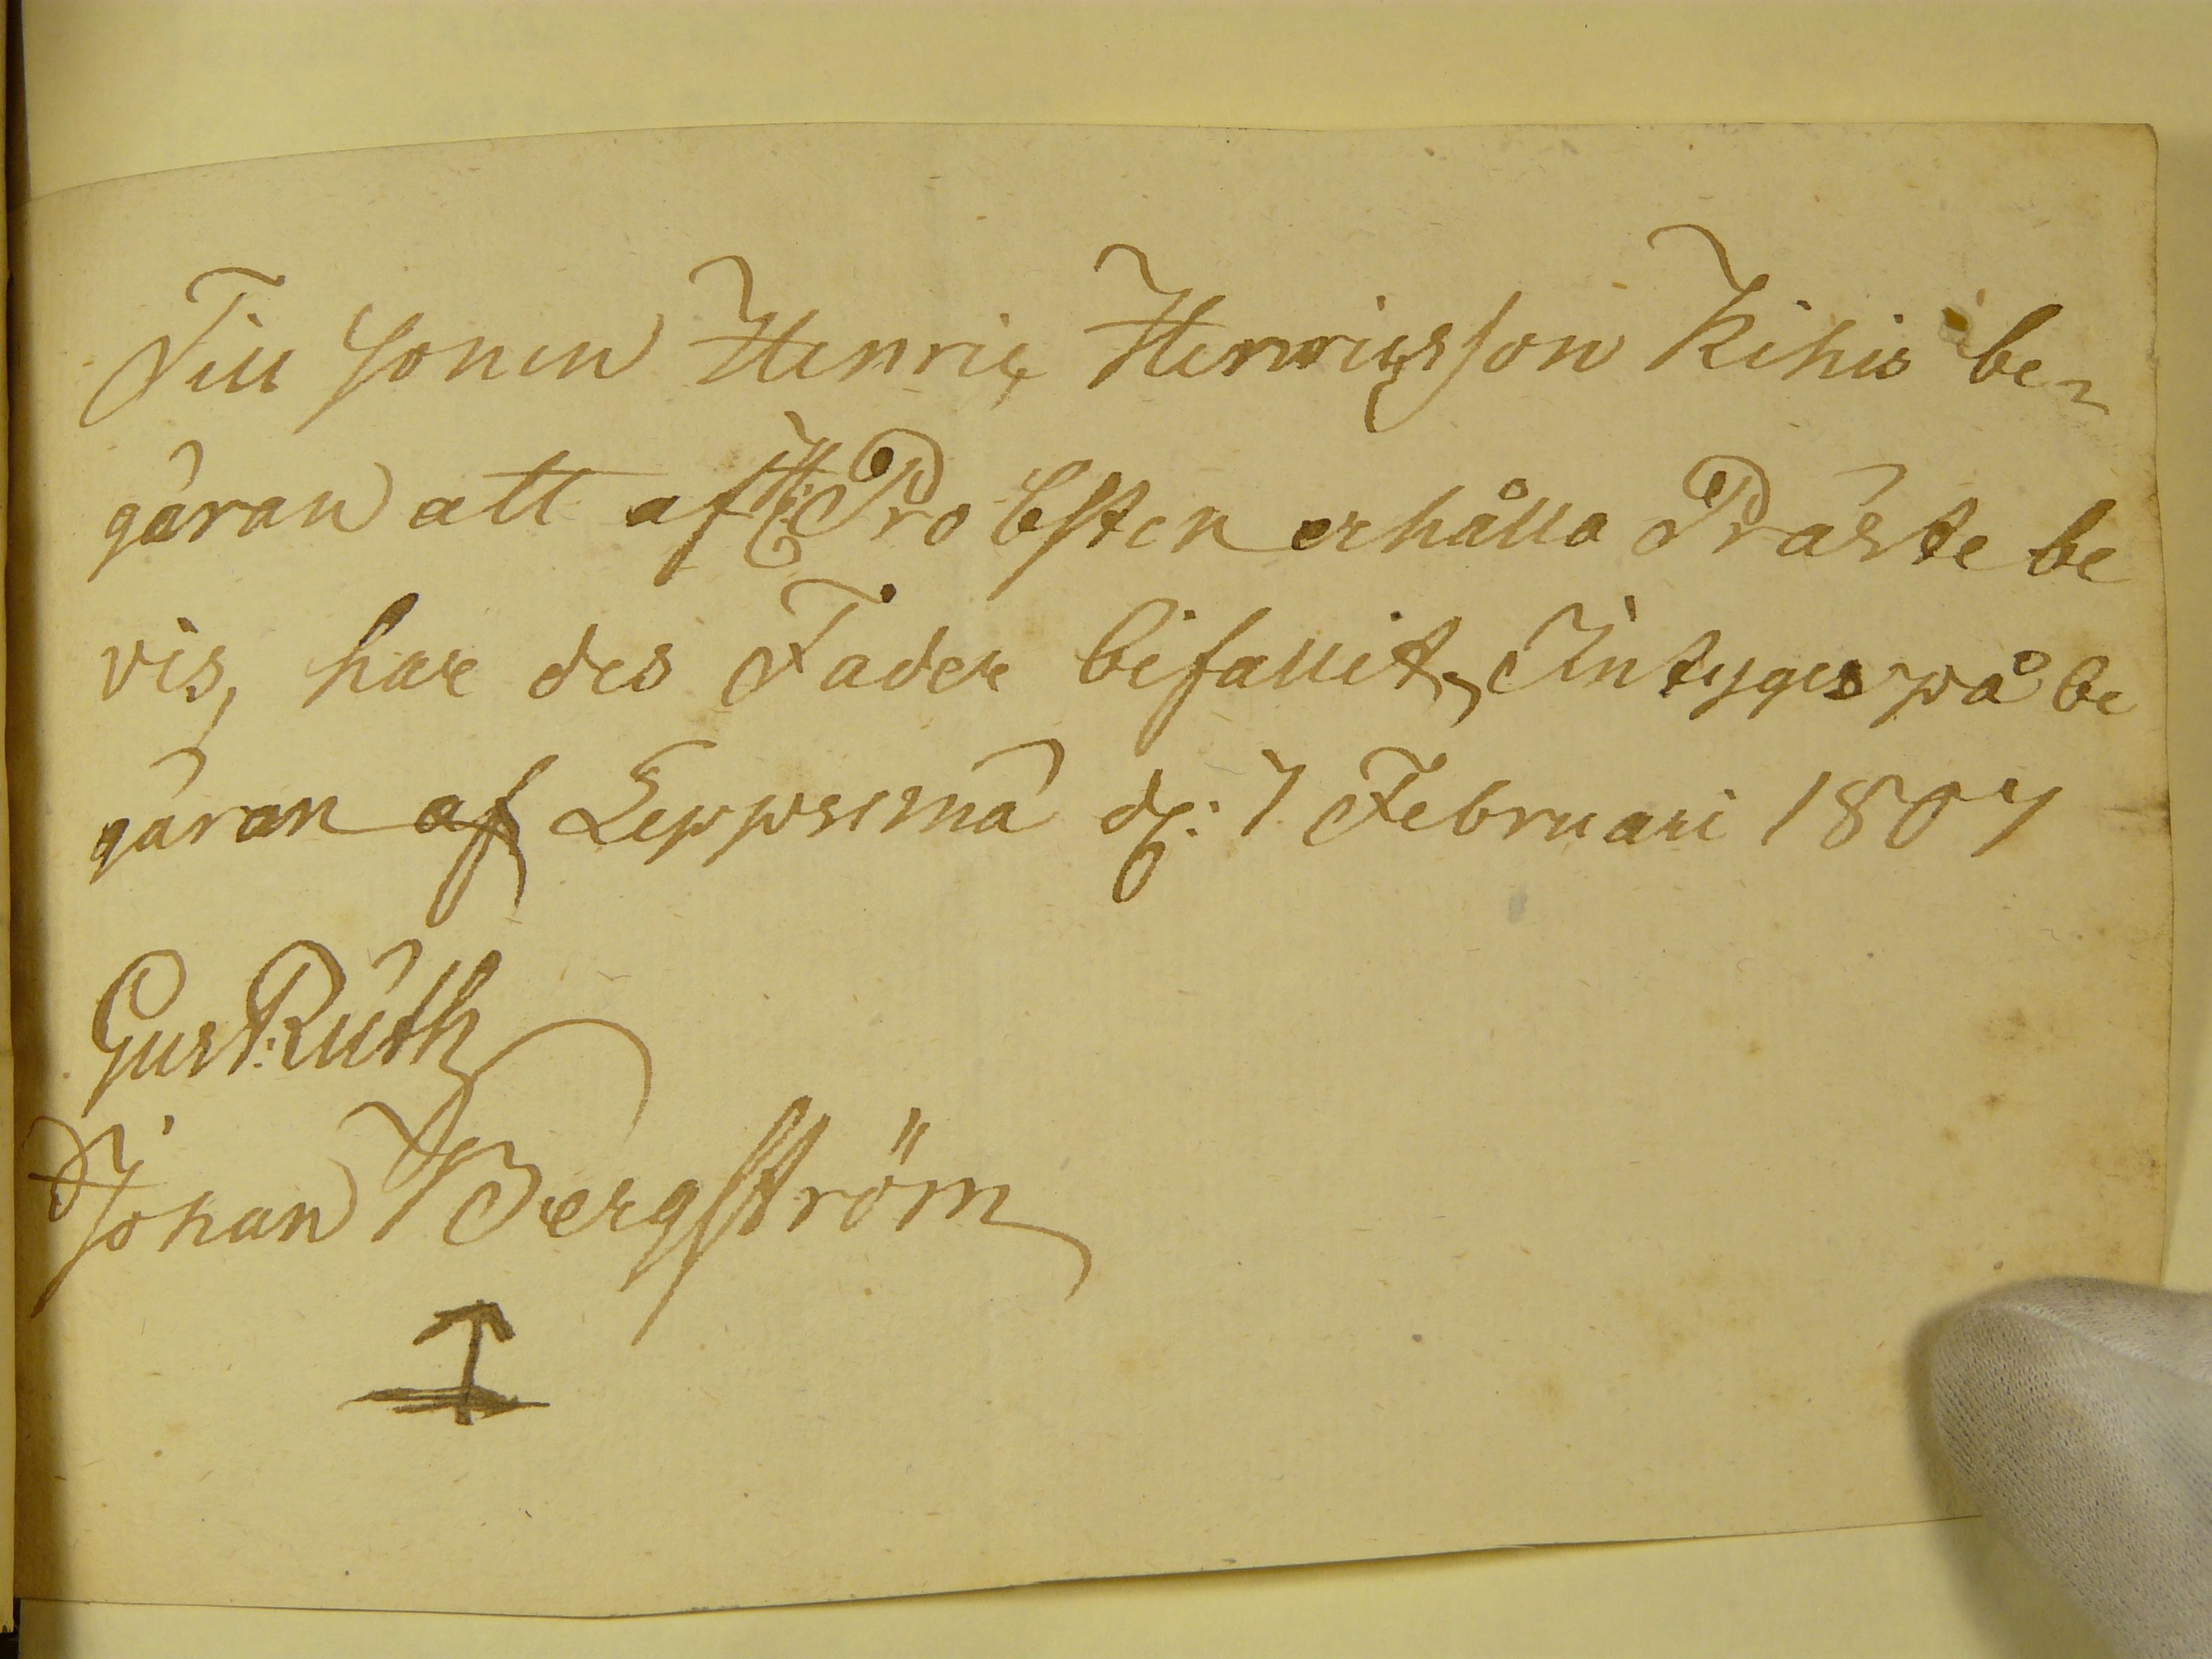 Till sonen Henric Henricsson Kihis be-
gäran att af H: Probsten erhålla Präste be
vis, har des Fader bifallit, Intyges på be
gäran af Leppsemä d: 7 Februari 1807
Gust: Rúth
Johan Bergström